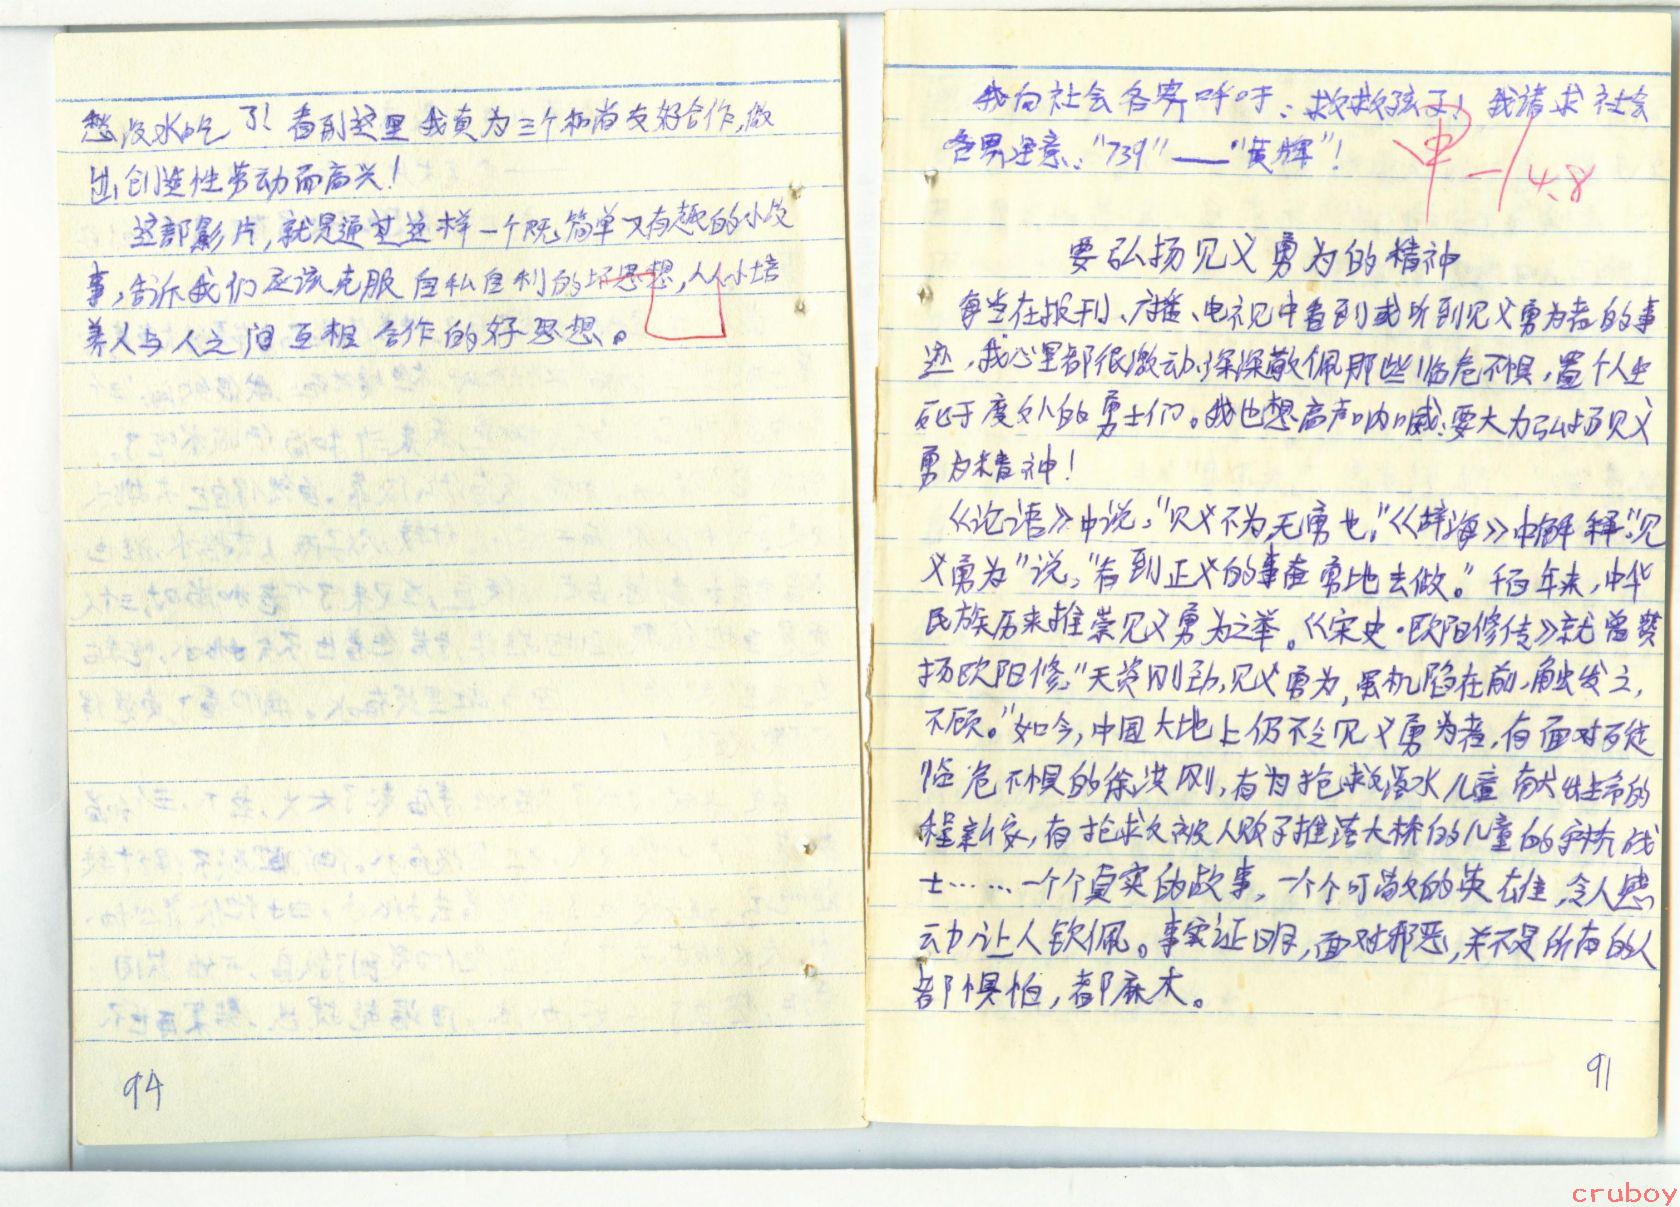 愁没水吃了！看到这里我真为三个和尚友好合作，做
出创造性劳动而高兴！
这部影片，就是通过这样一个既简单又有趣的小故
事，告诉我们应该克服自私自利的坏思想，从小培
养人与人之间互相合作的好思想。
94
我向社会各界呼吁：救救孩子！我请求社会
各界注意：“739”——“黄辉”！
4.8
要弘扬见义勇为的精神
每当在报刊、广播、电视中看到或听到见义勇为者的事
迹，我心里都很激动，深深敬佩那些临危不惧，置个人生
死于度外的勇士们。我也想高声呐喊：要大力弘扬见义
勇为精神！
《论语》中说：“见义不为，无勇也。”《辞海》中解释“见
义勇为”说：“看到正义的事奋勇地去做。”千百年来，中华
民族历来推崇见义勇为之举。《宋史·欧阳修传》就曾赞
扬欧阳修：“天资刚劲，见义勇为，虽机陷在前，触发之，
不顾。”如今，中国大地上仍不乏见义勇为者，有面对歹徒
临危不惧的徐洪刚，有为抢救落水儿童献出生命的
程新家，有抢救被人贩子推落大桥的儿童的守桥战
士……一个个真实的故事，一个个可敬的英雄，令人感
动，让人钦佩。事实证明，面对邪恶，并不是所有的人
都惧怕，都麻木。
91
cruboy